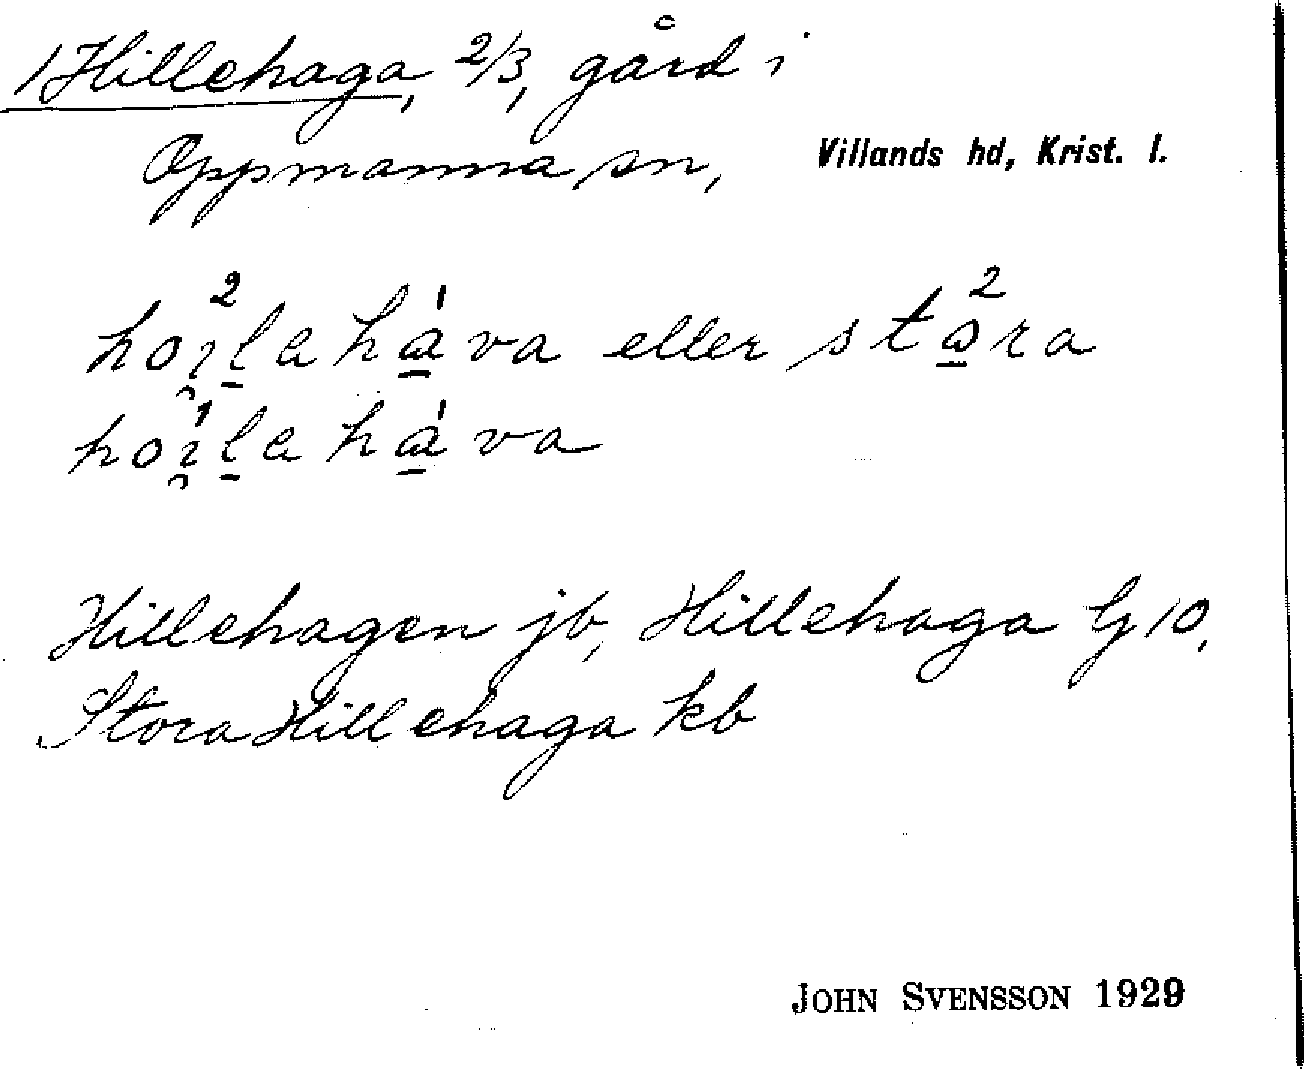 1 Hillehaga, 2/3, gård i
Oppmanna sn, Villands hd, Krist. l.
eller
Hillehagen jb, Hillehaga G 10,
Stora Hillehaga kb
JOHN SVENSSON 1929